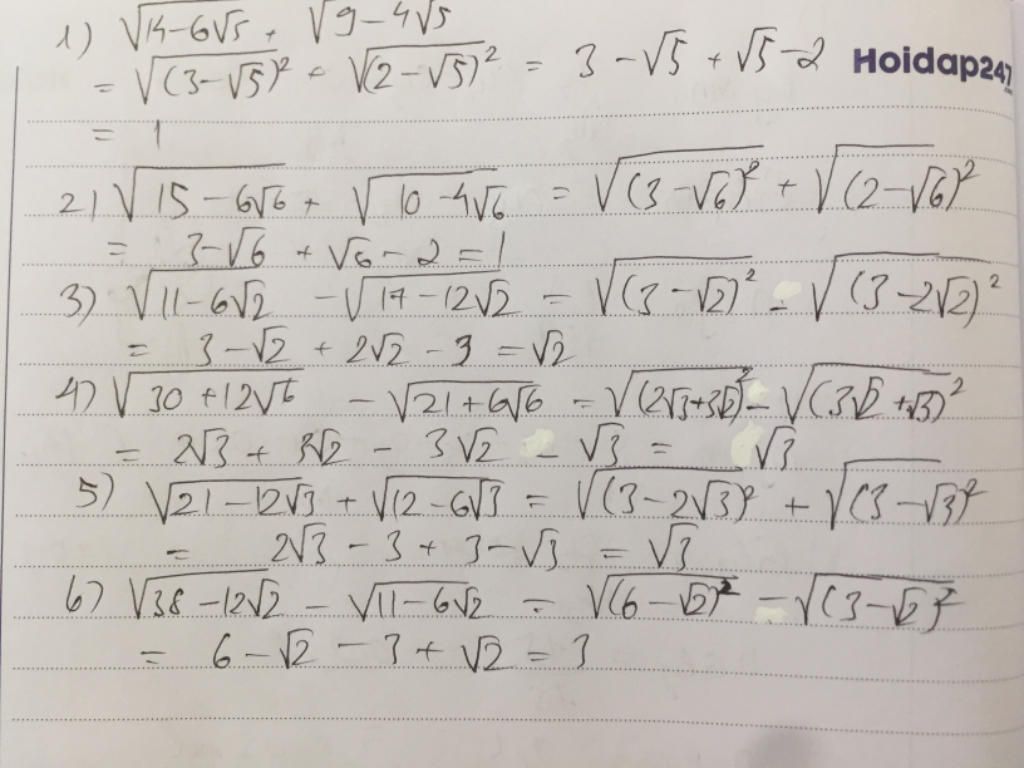 1) √(14-6√5) + √(9-4√5)
= √((3-√5)²) + √((2-√5)²) = 3-√5+√5-2
Hoidap247
= 1
2) √(15-6√6) + √(10-4√6) = √((3-√6)²) + √((2-√6)²)
= 3-√6 + √6-2 = 1
3) √(11-6√2) - √(17-12√2) = √((3-√2)²) - √((3-2√2)²)
= 3-√2 + 2√2 - 3 = √2
4) √(30+12√6) - √(21+6√6) = √((2√3+3√2)²) - √((3√2+√3)²)
= 2√3 + 3√2 - 3√2 - √3 = √3
5) √(21-12√3) + √(12-6√3) = √((3-2√3)²) + √((3-√3)²)
= 2√3 - 3 + 3-√3 = √3
6) √(38-12√2) - √(11-6√2) = √((6-√2)²) - √((3-√2)²)
= 6-√2 - 3+√2 = 3